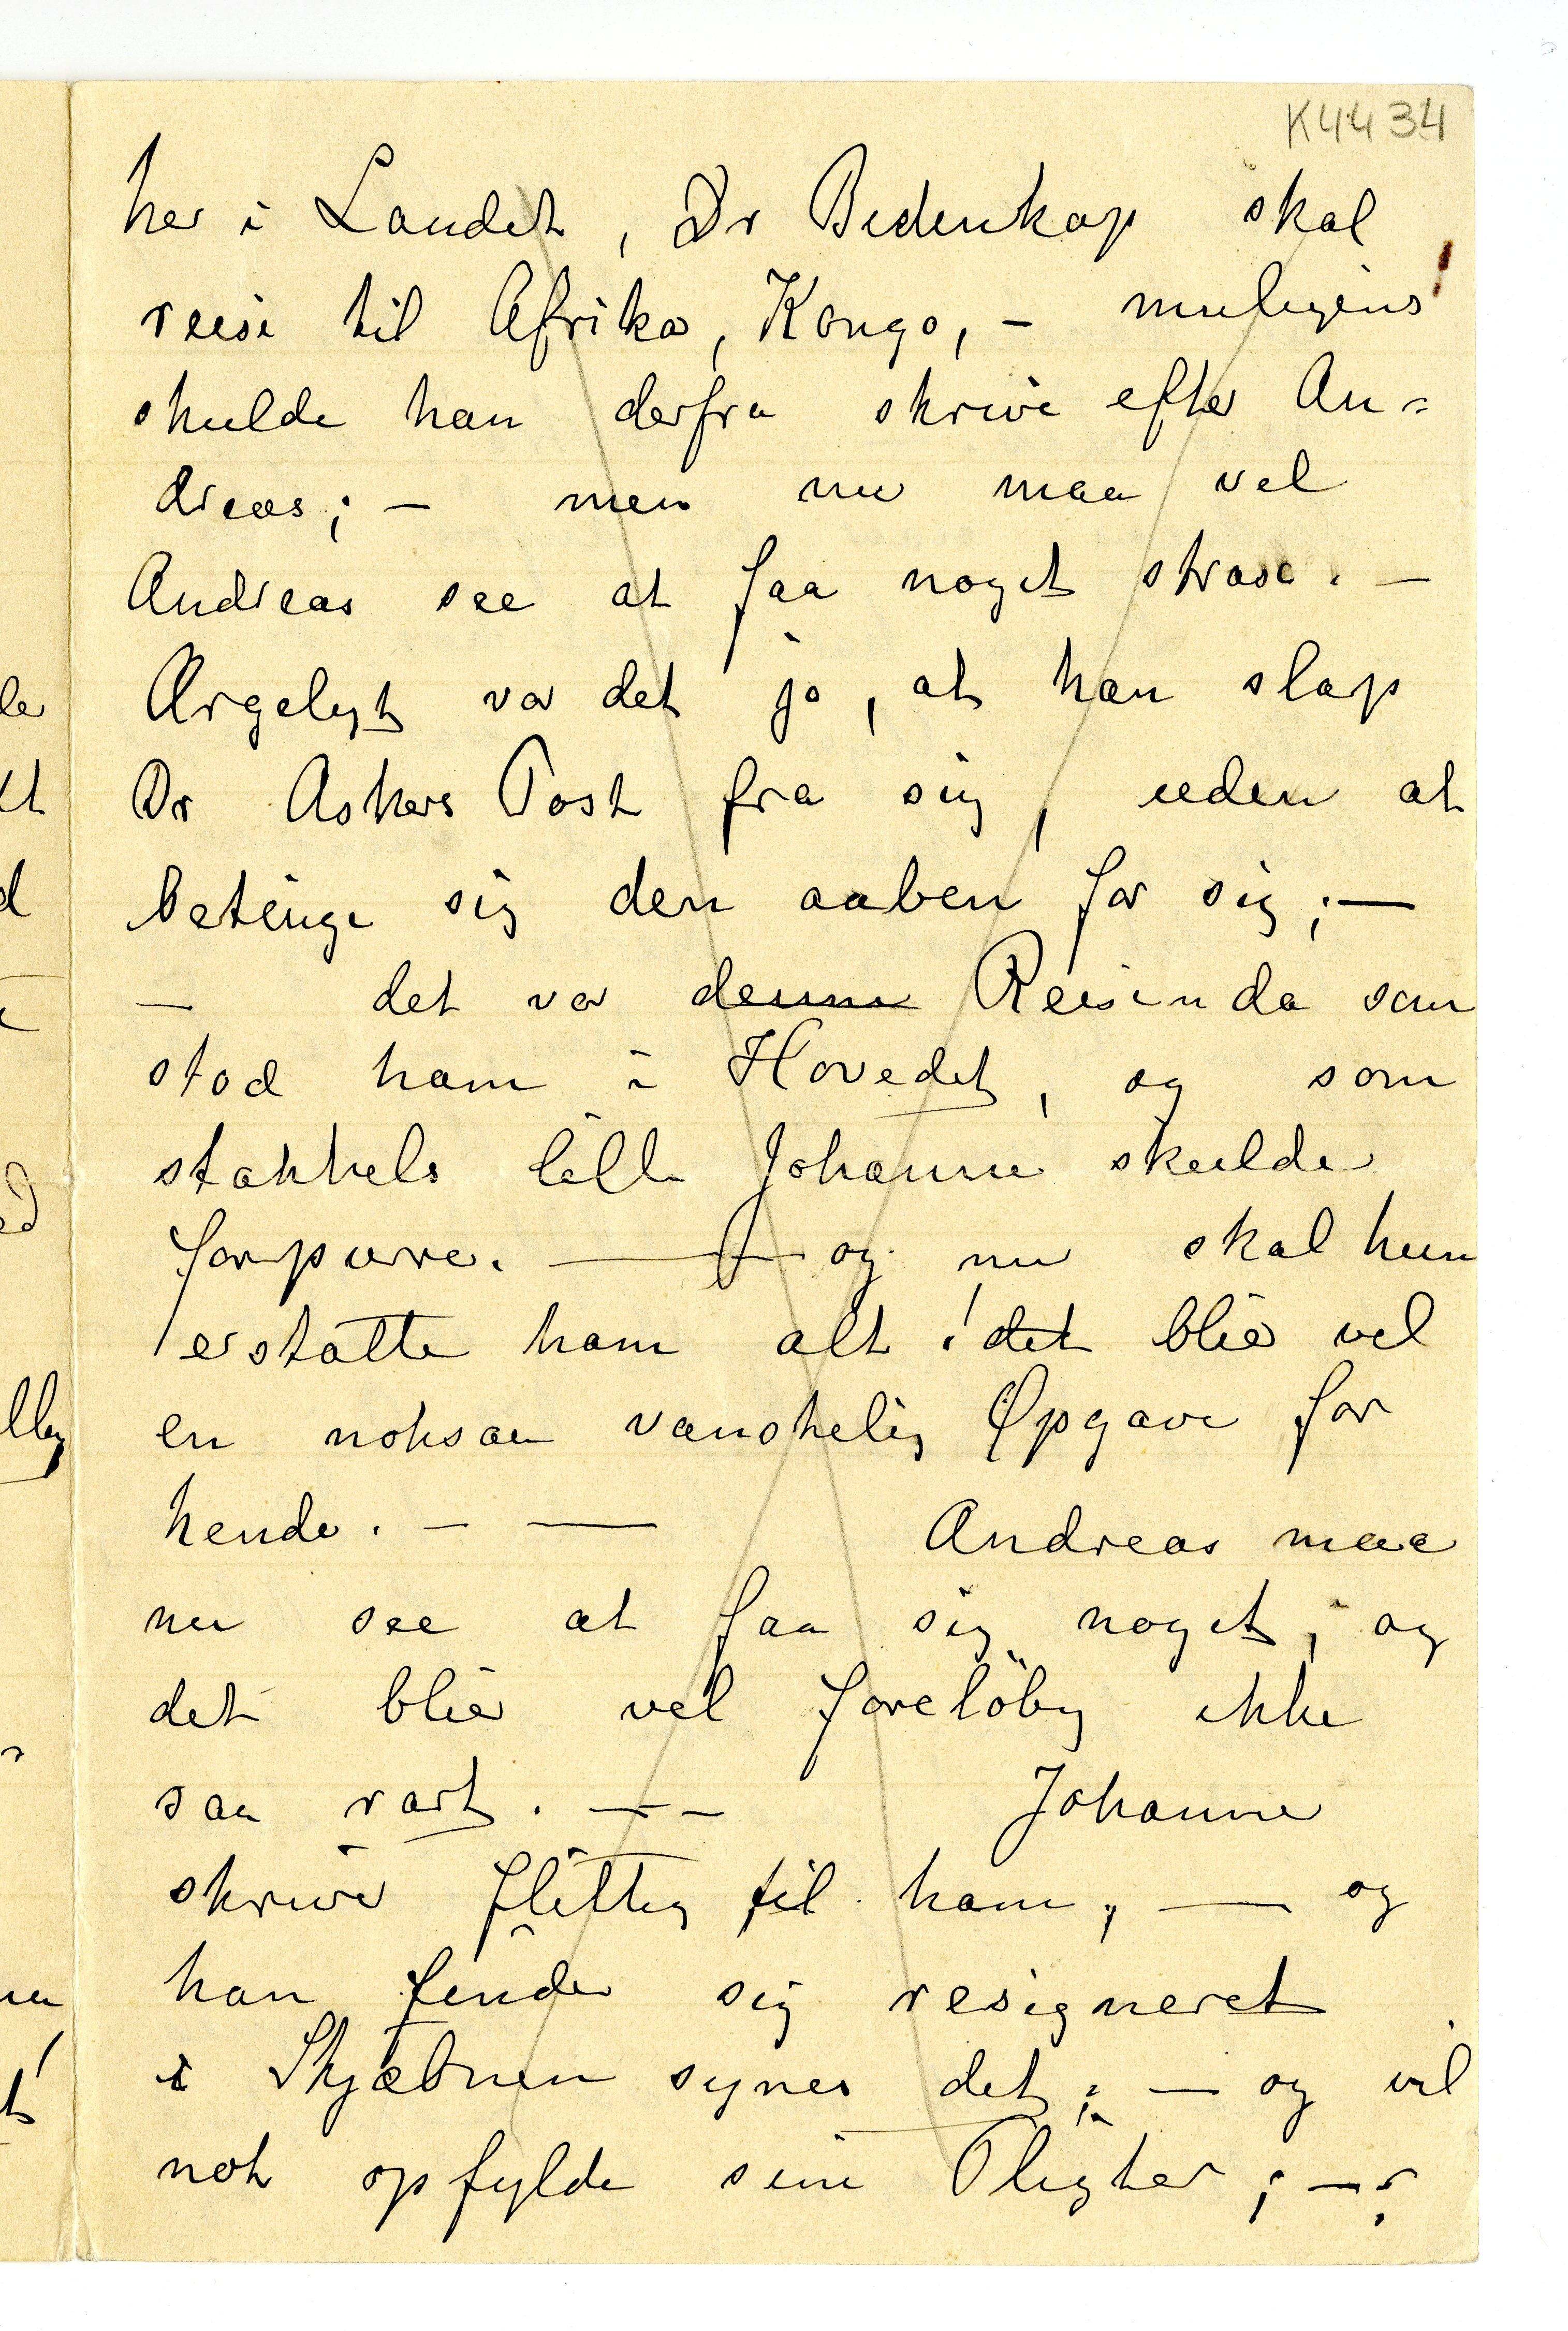 K4434
her i Landet, Dr Bidenkap skal
reise til Afrika, Kongo, – muligens
skulde han derfra skrive efter An=
dreas; – men nu maa vel
Andreas see at faa noget strax. –
Ærgeligt var det jo, at han slap
Dr Askers Post fra sig, uden at
betinge sig den aaben for sig; –
– det var denne Reisen da som
stod ham i Hovedet, og som
stakkels lille Johanne skulde
forpurre. — og nu skal hun
erstatte ham alt! det blir vel
en noksaa vanskelig Opgave for
hende. – — Andreas maa
nu see at faa sig noget, og
det blir vel foreløbig ikke
saa rart. – – Johanne
skriver flittig til ham, — og
han finder sig resigneret
i Skjæbnen synes det; — og vil
nok opfylde sine Pligter; –